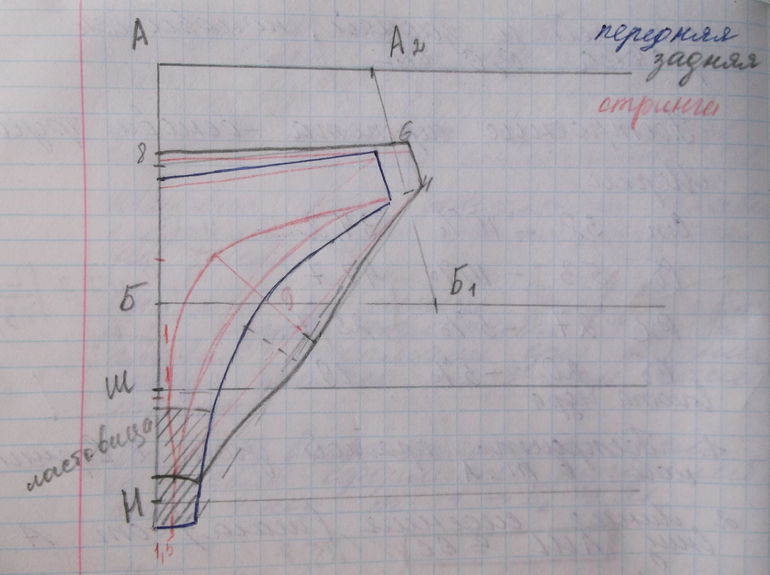 передняя
задняя
стринги
А
А2
8
Б
Б1
Ш
ластовица
Н
1,5